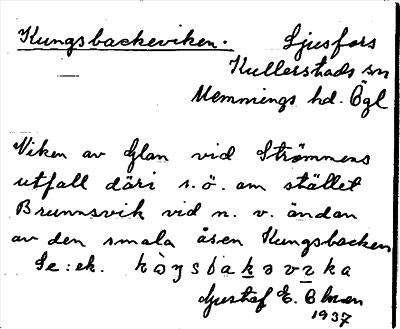 Kungsbackeviken. Ljusfors
Kullerstads sn
Memmings hd. Ögl
Viken av Glan vid Strömmens
utfall däri s.ö. om stället
Brunnsvik vid n. v. ändan
av den smala åsen Kungsbacken
Se: ek.
Gustaf E. Olsson
1937